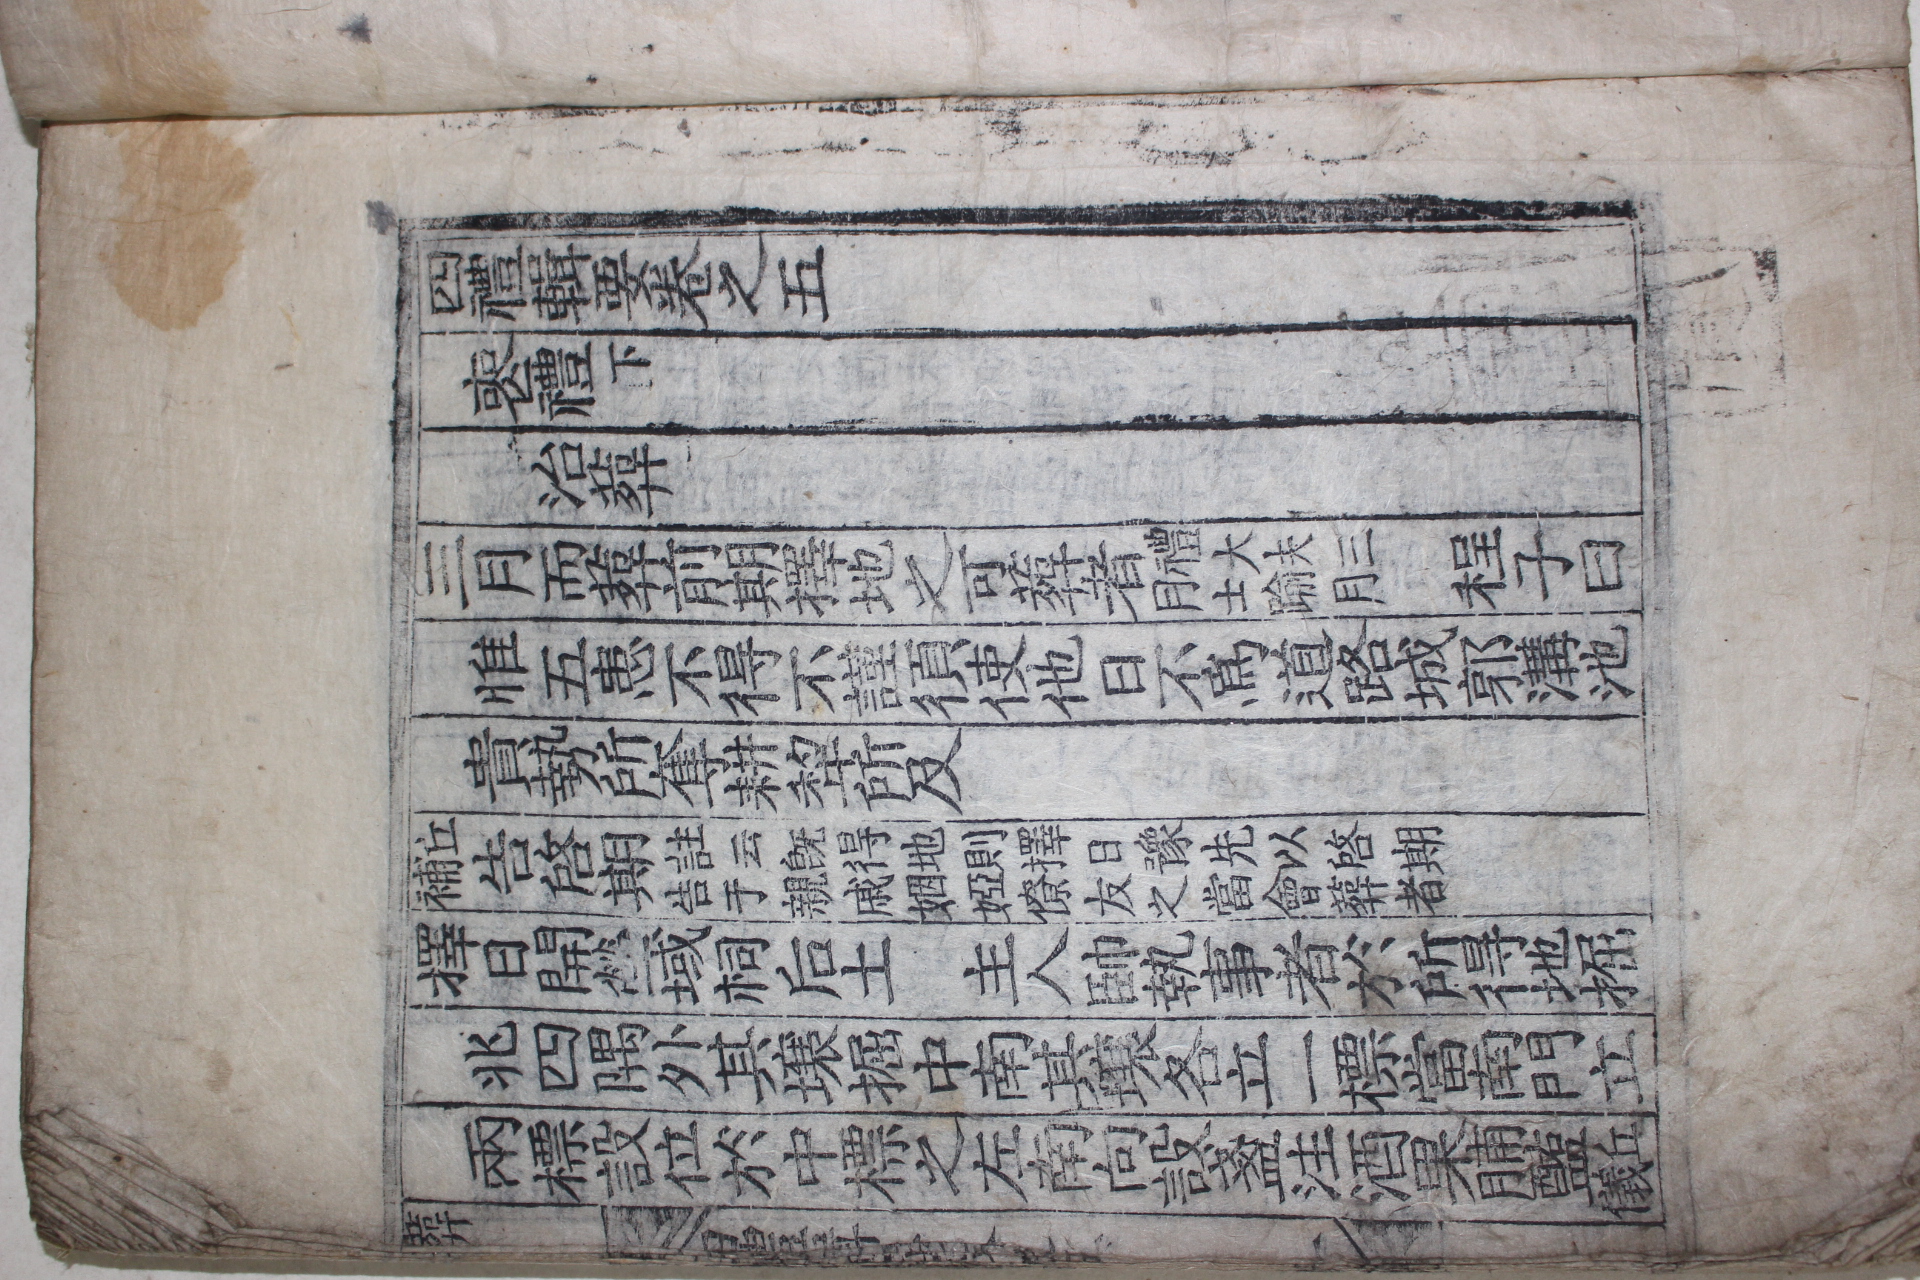 四禮輯要卷之五
喪禮下
治葬
三月而葬前期擇地之可葬者禮大夫三月士踰月 程子曰
惟五患不得不謹須使他日不爲道路城郭溝池
貴勢所奪耕犂所及
丘補告啓期註云旣得地則擇日豫先以啓期告于親戚姻婭僚友之當會葬者
擇日開塋域祠后土 主人帥執事者於所得地掘
兆四隅外其壤掘中南其壤各立一標當南門立
兩標設位於中標之左南向設盞注酒果脯醢丘儀
葬